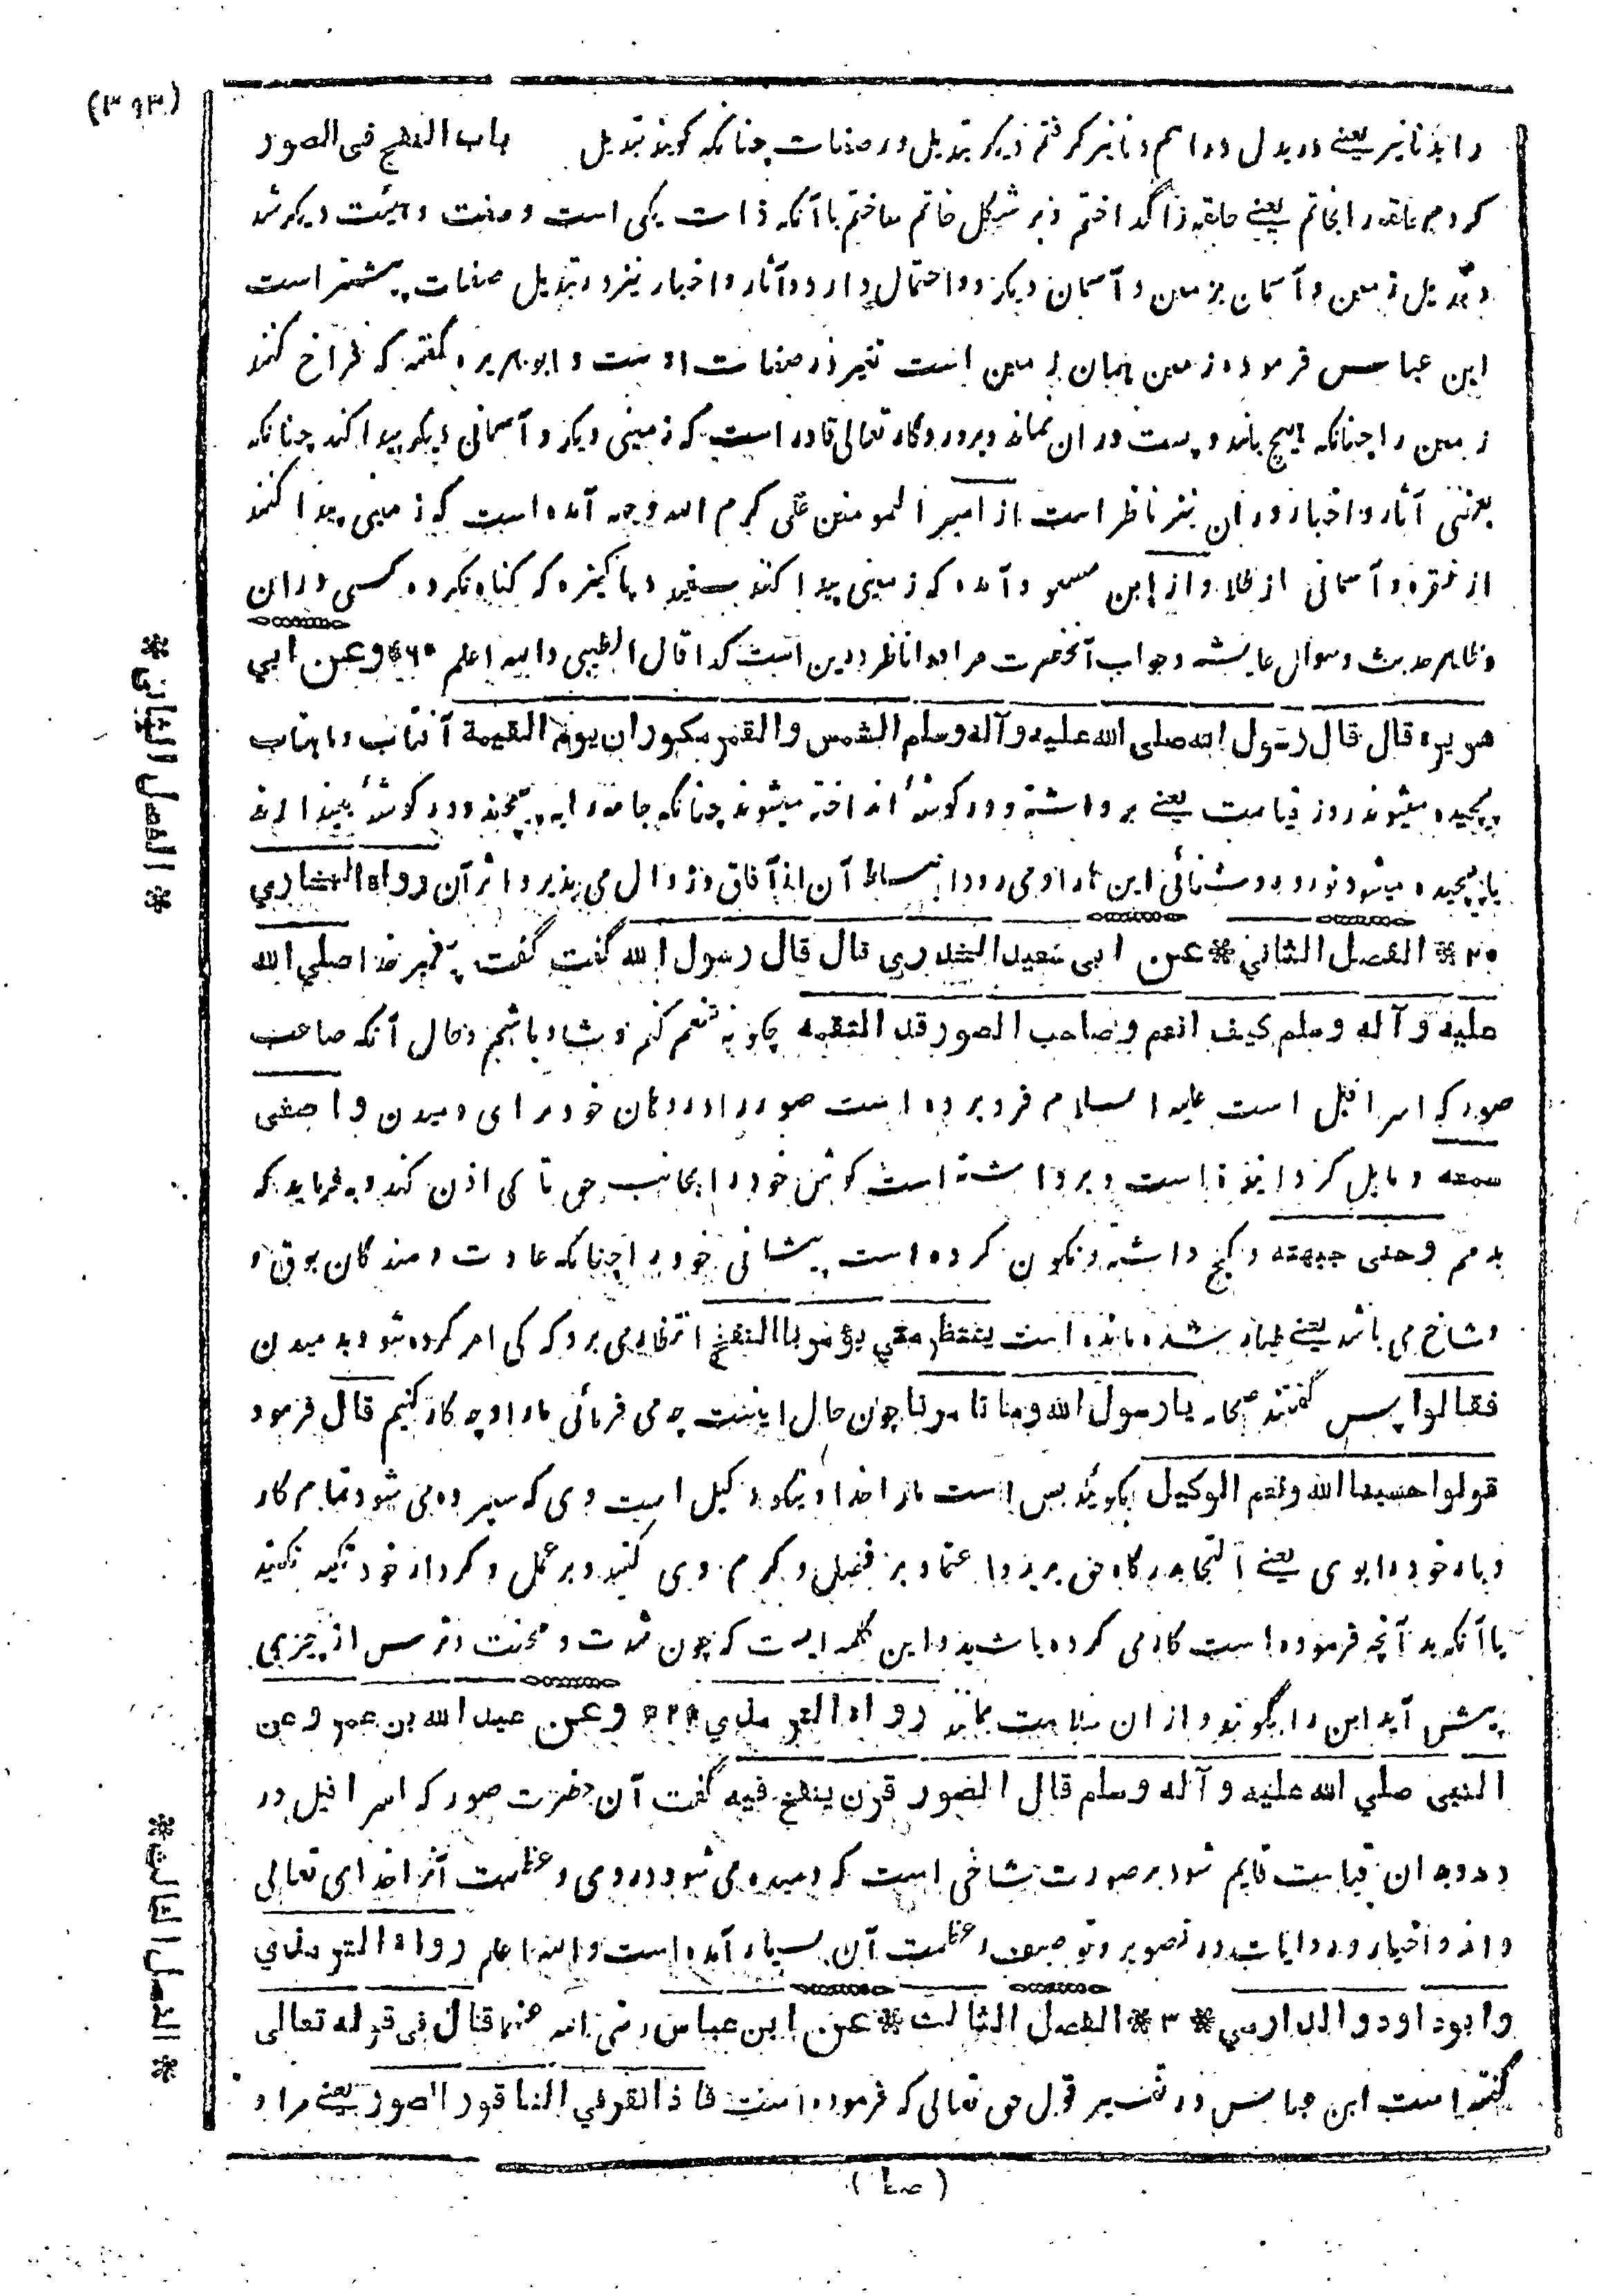 (۳۹۳)
باب النفخ فی الصور
را بدنانیر یعنے در بدل دراهم دنانیر گرفتم دیگر تبدیل در صفات چنانکه گویند تبدیل
کردم حلقه را بخاتم یعنے حلقه را گداختم و بر شکل خاتم ساختم با آنکه ذات یکی است و صفت و هیئت دیگر شد
و تبدیل زمین و آسمان بزمین و آسمان دیگر دو احتمال دارد و آثار و اخبار نیز در تبدیل صفات بیشتر است
ابن عباس فرموده زمین همان زمین است تغیر در صفات اوست و ابوهریره گفته که فراخ کنند
زمین را چنانکه هیچ بلند و پست در ان نماند و پروردگار تعالی قادر است که زمینی دیگر و آسمانی دیگر پیدا کند چنانکه
بعضی آثار و اخبار در ان نیز ناظر است از امیر المومنین علی کرم الله وجهه آمده است که زمینی پیدا کنند
از نقره و آسمانی از طلا و از ابن مسعود آمده که زمینی پیدا کنند سفید و پاکیزه که گناه نکرده کسی در ان
و ظاهر حدیث و سوال عایشه و جواب آنحضرت مر اورا ناظر درین است کذا قال الطیبی والله اعلم وعن ابي
هریره قال قال رسول الله صلی الله علیه وآله وسلم الشمس والقمر مکوران یوم القیمة آفتاب و ماهتاب
پیچیده میشوند روز قیامت یعنے برداشته و در گوشهٔ انداخته میشوند چنانکه جامه را به پیچند و در گوشهٔ بیندازند
یا پیچیده میشود نور و روشنائی این ها را و می رود انبساط آن از آفاق و زوال می پذیرد اثر آن رواه البخاري
* ۲ * الفصل الثاني * عن ابی سعید الخدري قال قال رسول الله گفت گفت پیغمبر خدا صلي الله
علیه وآله وسلم کیف انعم وصاحب الصور قد التقمه چگونه تنعم کنم و شاد باشم و حال آنکه صاحب
صور که اسرافیل است علیه السلام فرو برده است صور را در دهان خود برای دمیدن و اصغی
سمعه و مایل گردانیده است و برداشته است گوش خود را بجانب حق تا کی اذن کند و بفرماید که
بدمم وحنی جبهته و کج داشته و نگون کرده است پیشانی خود را چنانکه عادت دمندگان بوق و
و شاخ می باشد یعنے طیار شده مانده است ینتظر متی یؤمر باالنفخ انتظار می برد که کی امر کرده شود بدمیدن
فقالوا پس گفتند صحابه یا رسول الله وما تامرنا چون حال اینست چه می فرمائی ما را و چه کار کنیم قال فرمود
قولوا حسبنا الله ونعم الوکیل بگوئید بس است ما را خدا و نیکو وکیل است وی که سپرده می شود تمام کار
و بار خود را بوی یعنے التجا بدرگاه حق برید و اعتماد بر فضل و کرم وی کنید و بر عمل و کردار خود تکیه نکنید
با آنکه بد آنچه فرموده است کار می کرده باشید و این کلمه ایست که چون شدت و محنت و ترس از چیزی
پیش آید این را بگویند و از ان سلامت بمانند رواه الترمذي وعن عبد الله بن عمر وعن
النبی صلي الله علیه وآله وسلم قال الصور قرن ینفخ فیه گفت آن حضرت صور که اسرافیل در
دمد و بدان قیامت قایم شود بر صورت شاخی است که دمیده می شود در وی و عظمت آنرا خدای تعالی
داند و اخبار و روایات در تصویر و توصیف و عظمت آن بسیار آمده است والله اعلم رواه الترمذي
وابوداود والدارمي * ۳ * الفصل الثالث * عن ابن عباس رضی الله عنهما قال فی قوله تعالی
گفته است ابن عباس در تفسیر قول حق تعالی که فرموده است فاذا نقر في الناقور الصور یعنے مراد
* الفصل الثاني *
* الفصل الثالث *